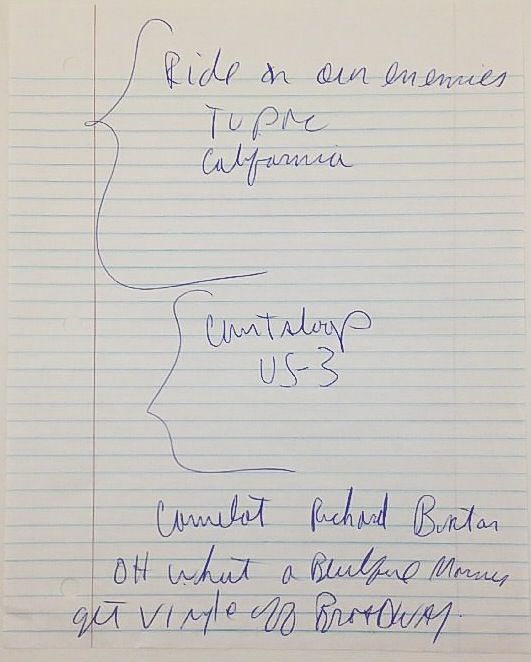 Ride on our enemies
Tupac
California
Cantaloop
US-3
Camelot Richard Burton
OH what a Beautiful Morning
get vinyle off BROADWAY.